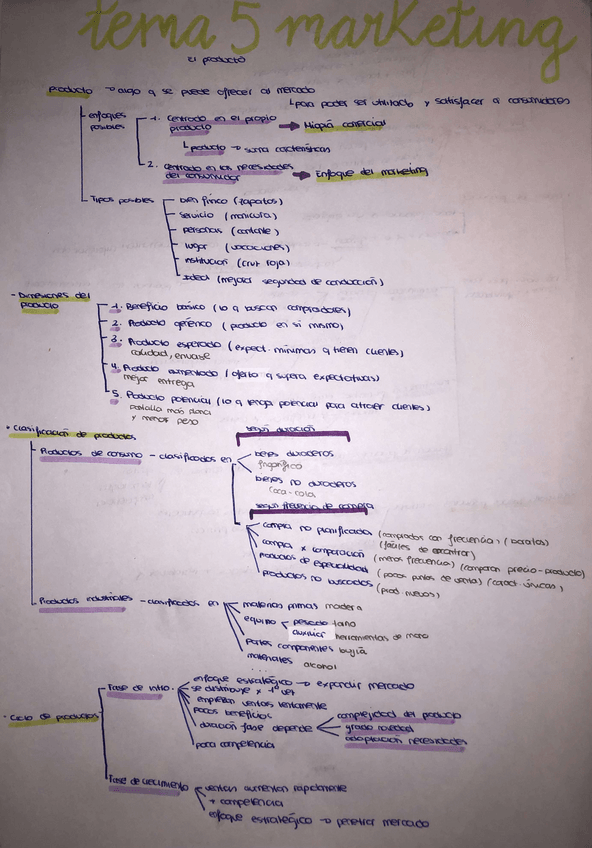 tema 5 marketing
El producto
producto → algo q se puede ofrecer al mercado
↳ para poder ser utilizado y satisfacer a consumidores
enfoques posibles
1. centrado en el propio producto → Miopía comercial
↳ producto → suma características
2. centrado en las necesidades del consumidor → Enfoque del marketing
Tipos posibles
bien físico (zapatos)
servicio (manicura)
personas (cantante)
lugar (vacaciones)
institución (cruz roja)
Idea (mejorar seguridad de conducción)
- Dimensiones del producto
1. Beneficio básico (lo q buscan compradores)
2. Producto genérico (producto en sí mismo)
3. Producto esperado (expect. mínimas q tienen clientes)
calidad, envase
4. Producto aumentado (oferta q supera expectativas)
mejor entrega
5. Producto potencial (lo q tenga potencial para atraer clientes)
pantalla más plana
y menos peso
• Clasificación de productos
según duración
Productos de consumo - clasificados en
bienes duraderos
frigorífico
bienes no duraderos
coca-cola
según frecuencia de compra
compra no planificada (comprados con frecuencia) (baratos)
(fáciles de encontrar)
compra x comparación (menos frecuencia) (comparan precio-producto)
productos de especialidad (pocos puntos de venta) (caract. únicas)
productos no buscados (prod. nuevos)
Productos industriales - clasificados en
materias primas madera
equipo
pesado torno
auxiliar herramientas de mano
partes componentes bujía
materiales alcohol
...
• Ciclo de productos
Fase de intro.
enfoque estratégico → expandir mercado
se distribuye x 1ª vez
empiezan ventas lentamente
pocos beneficios
duración fase depende
complejidad del producto
grado novedad
adaptación necesidades
poca competencia
Fase de crecimiento
ventas aumentan rápidamente
+ competencia
enfoque estratégico → penetrar mercado